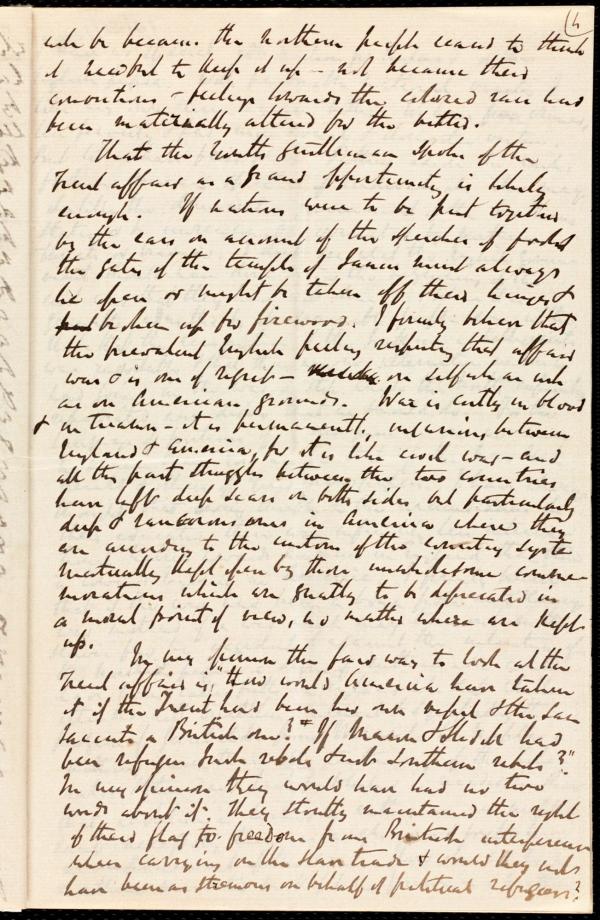 4
only be because the Northern people ceased to think
it needful to keep it up - not because their
convictions & feelings towards the colored race had
been materially altered for the better.
That the gentleman spoke of the
Trent affair as a grand opportunity is likely
enough. If nations were to be put together
by the ears on account of the speeches of fools
the gates of the temple of Janus must always
be open or might be taken off their hinges &
broken up for firewood. I firmly believe that
the prevalent English feeling respecting that affair
was & is one of regret - on selfish as well
as on American grounds. War is costly in blood
& in treasure - it is permanently injurious between
England & America, for it is like civil war - and
all the past struggles between the two countries
have left deep scars on both sides but particularly
deep & rancorous ones in America where they
are according to the custom of the country syste
matically kept open by those unwholesome comme
morations which are greatly to be deprecated in
a moral point of view, no matter where are kept
up.
In my opinion the fair way to look at the
Trent affair is, "How would America have taken
it if the Trent had been her own vessel & the San
Jacinto a British one?" "If Mason & Slidell had
been refugee Irish rebels & not Southern rebels?"
In my opinion they would have had no two
words about it. They stoutly maintained the right
of their flag to freedom from British interference
when carrying on the slave trade & would they not
have been as strenuous on behalf of political refugees?